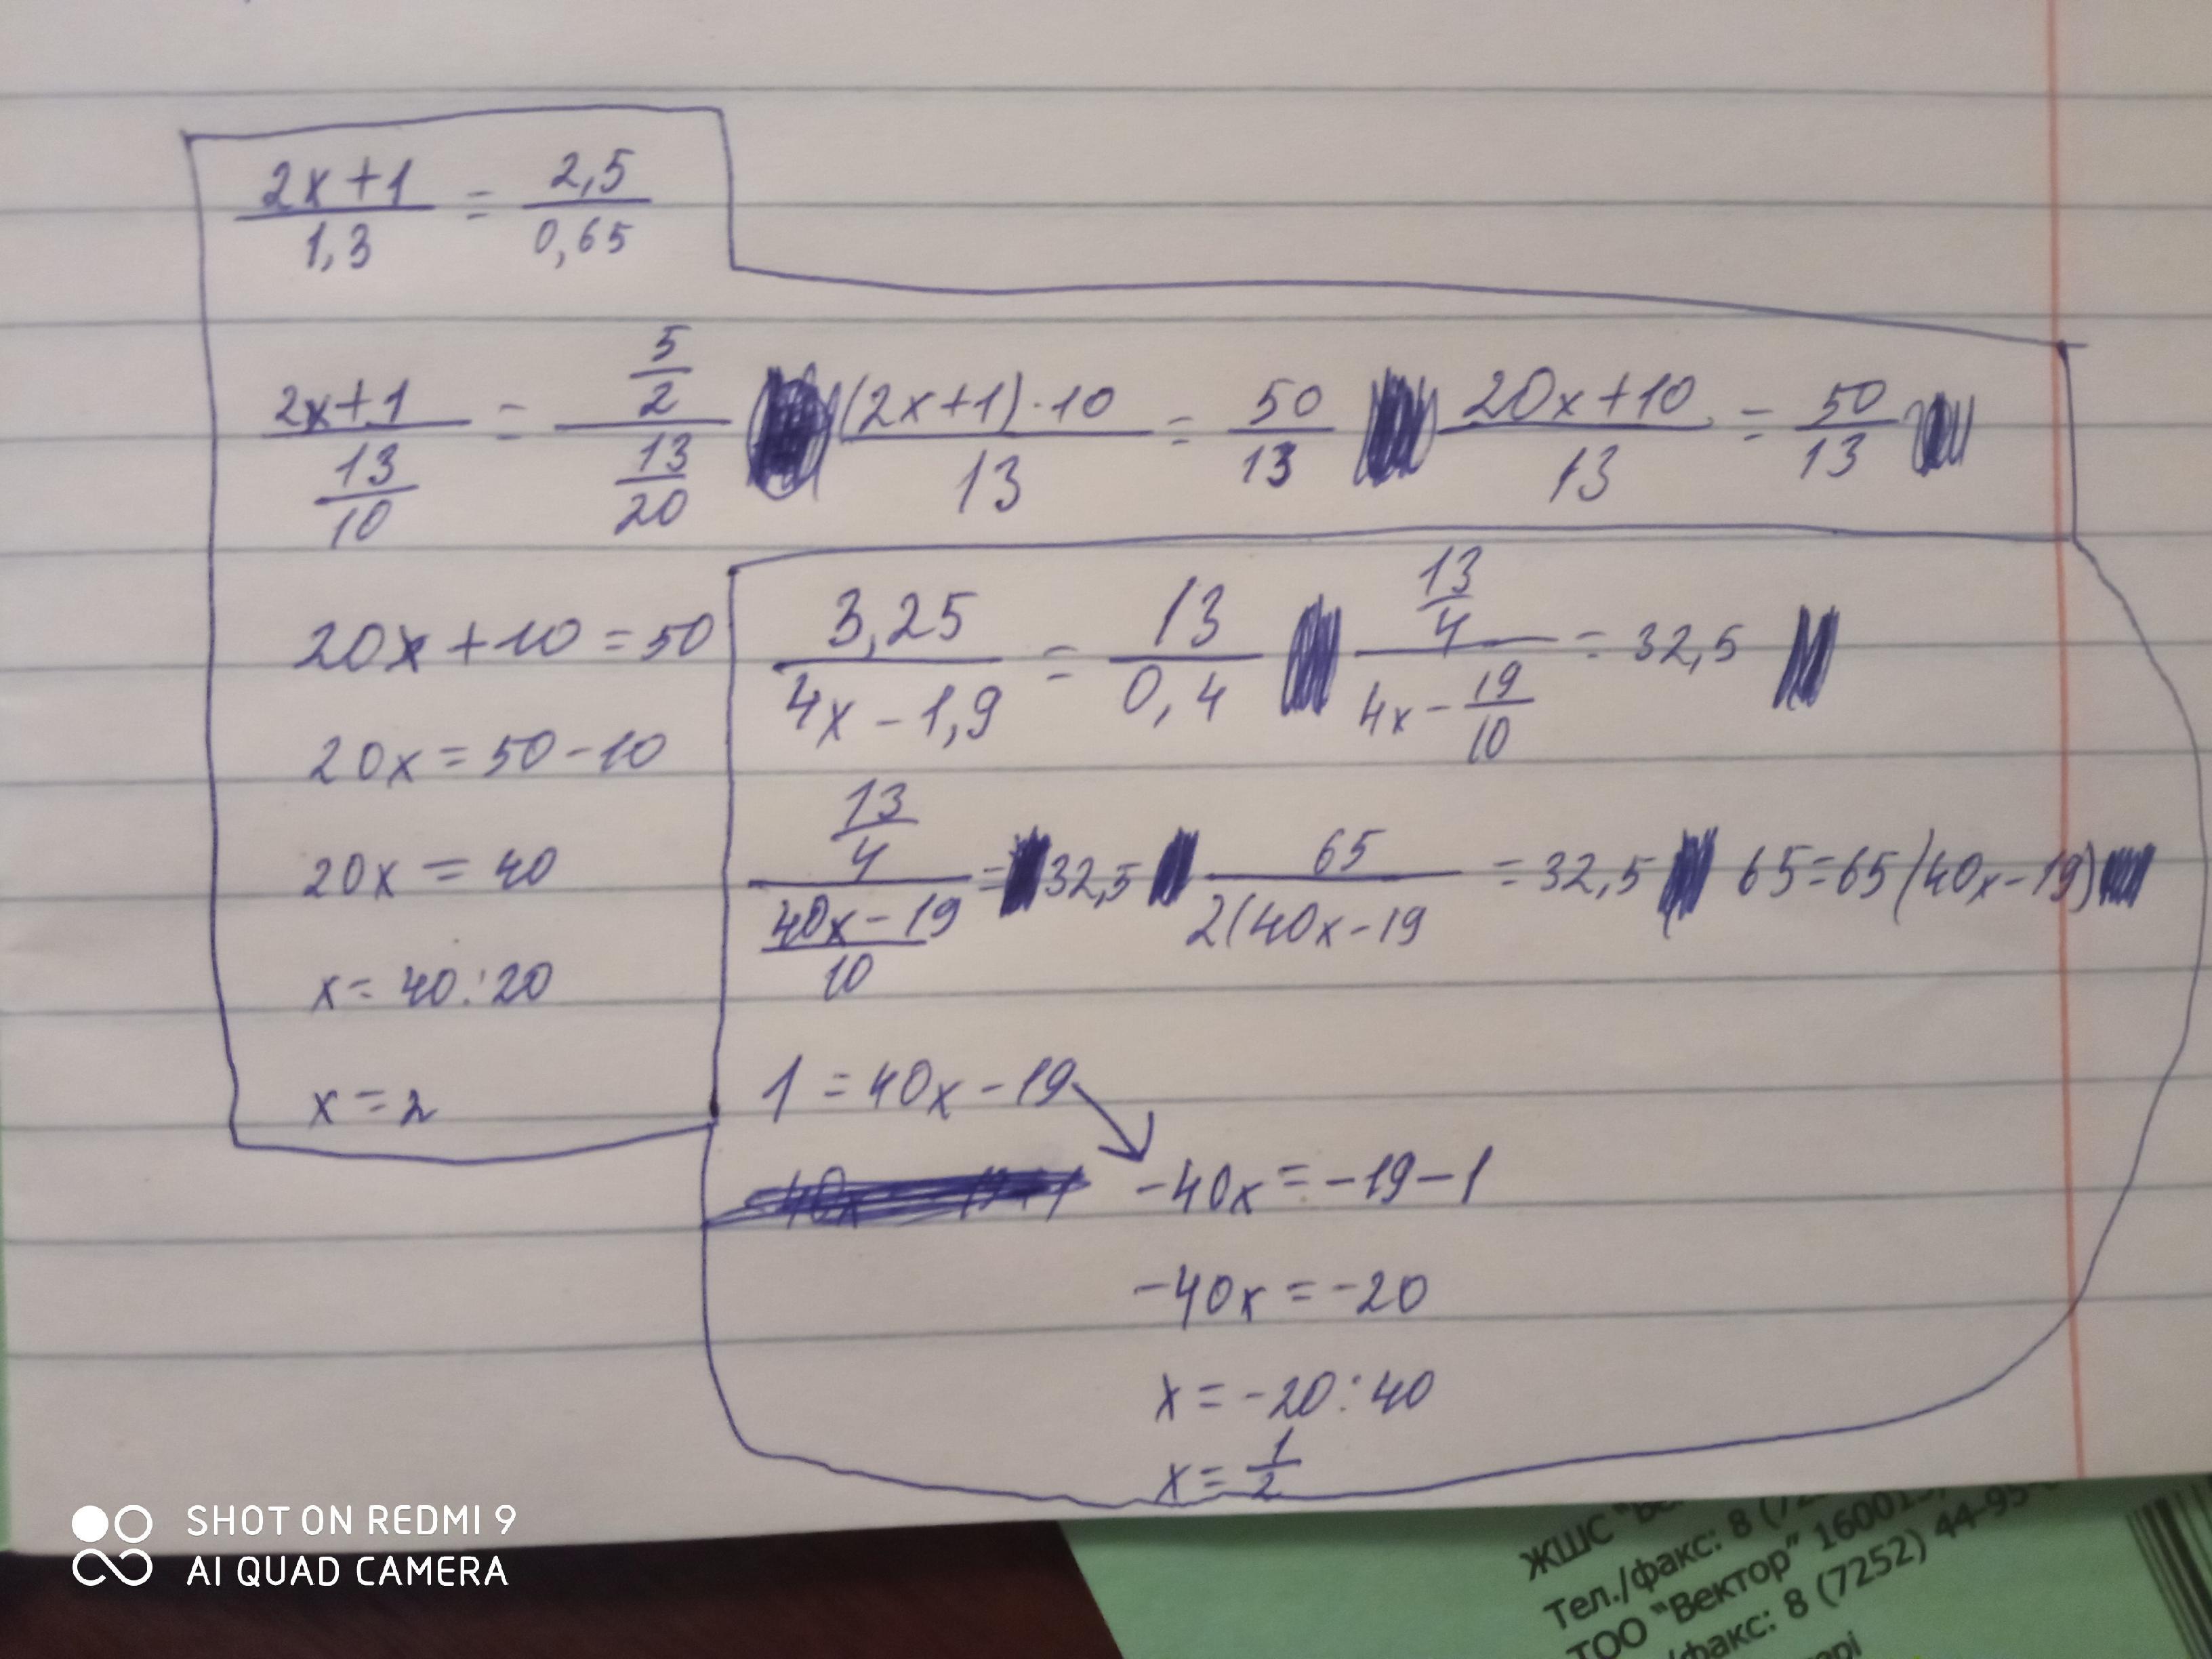 2x+1/1,3 = 2,5/0,65
2x+1/(13/10) = (5/2)/(13/20) (2x+1)·10/13 = 50/13 20x+10/13 = 50/13
20x+10=50
20x=50-10
20x=40
x=40:20
x=2
3,25/4x-1,9 = 13/0,4 (13/4)/(4x-19/10) = 32,5
(13/4)/(40x-19/10) = 32,5 65/2(40x-19 = 32,5 65=65(40x-19)
1=40x-19
-40x=-19-1
-40x=-20
x=-20:40
x=1/2
SHOT ON REDMI 9
AI QUAD CAMERA
ЖШС
Тел./факс: 8
ТОО "Вектор" 160013
/факс: 8 (7252) 44-95-